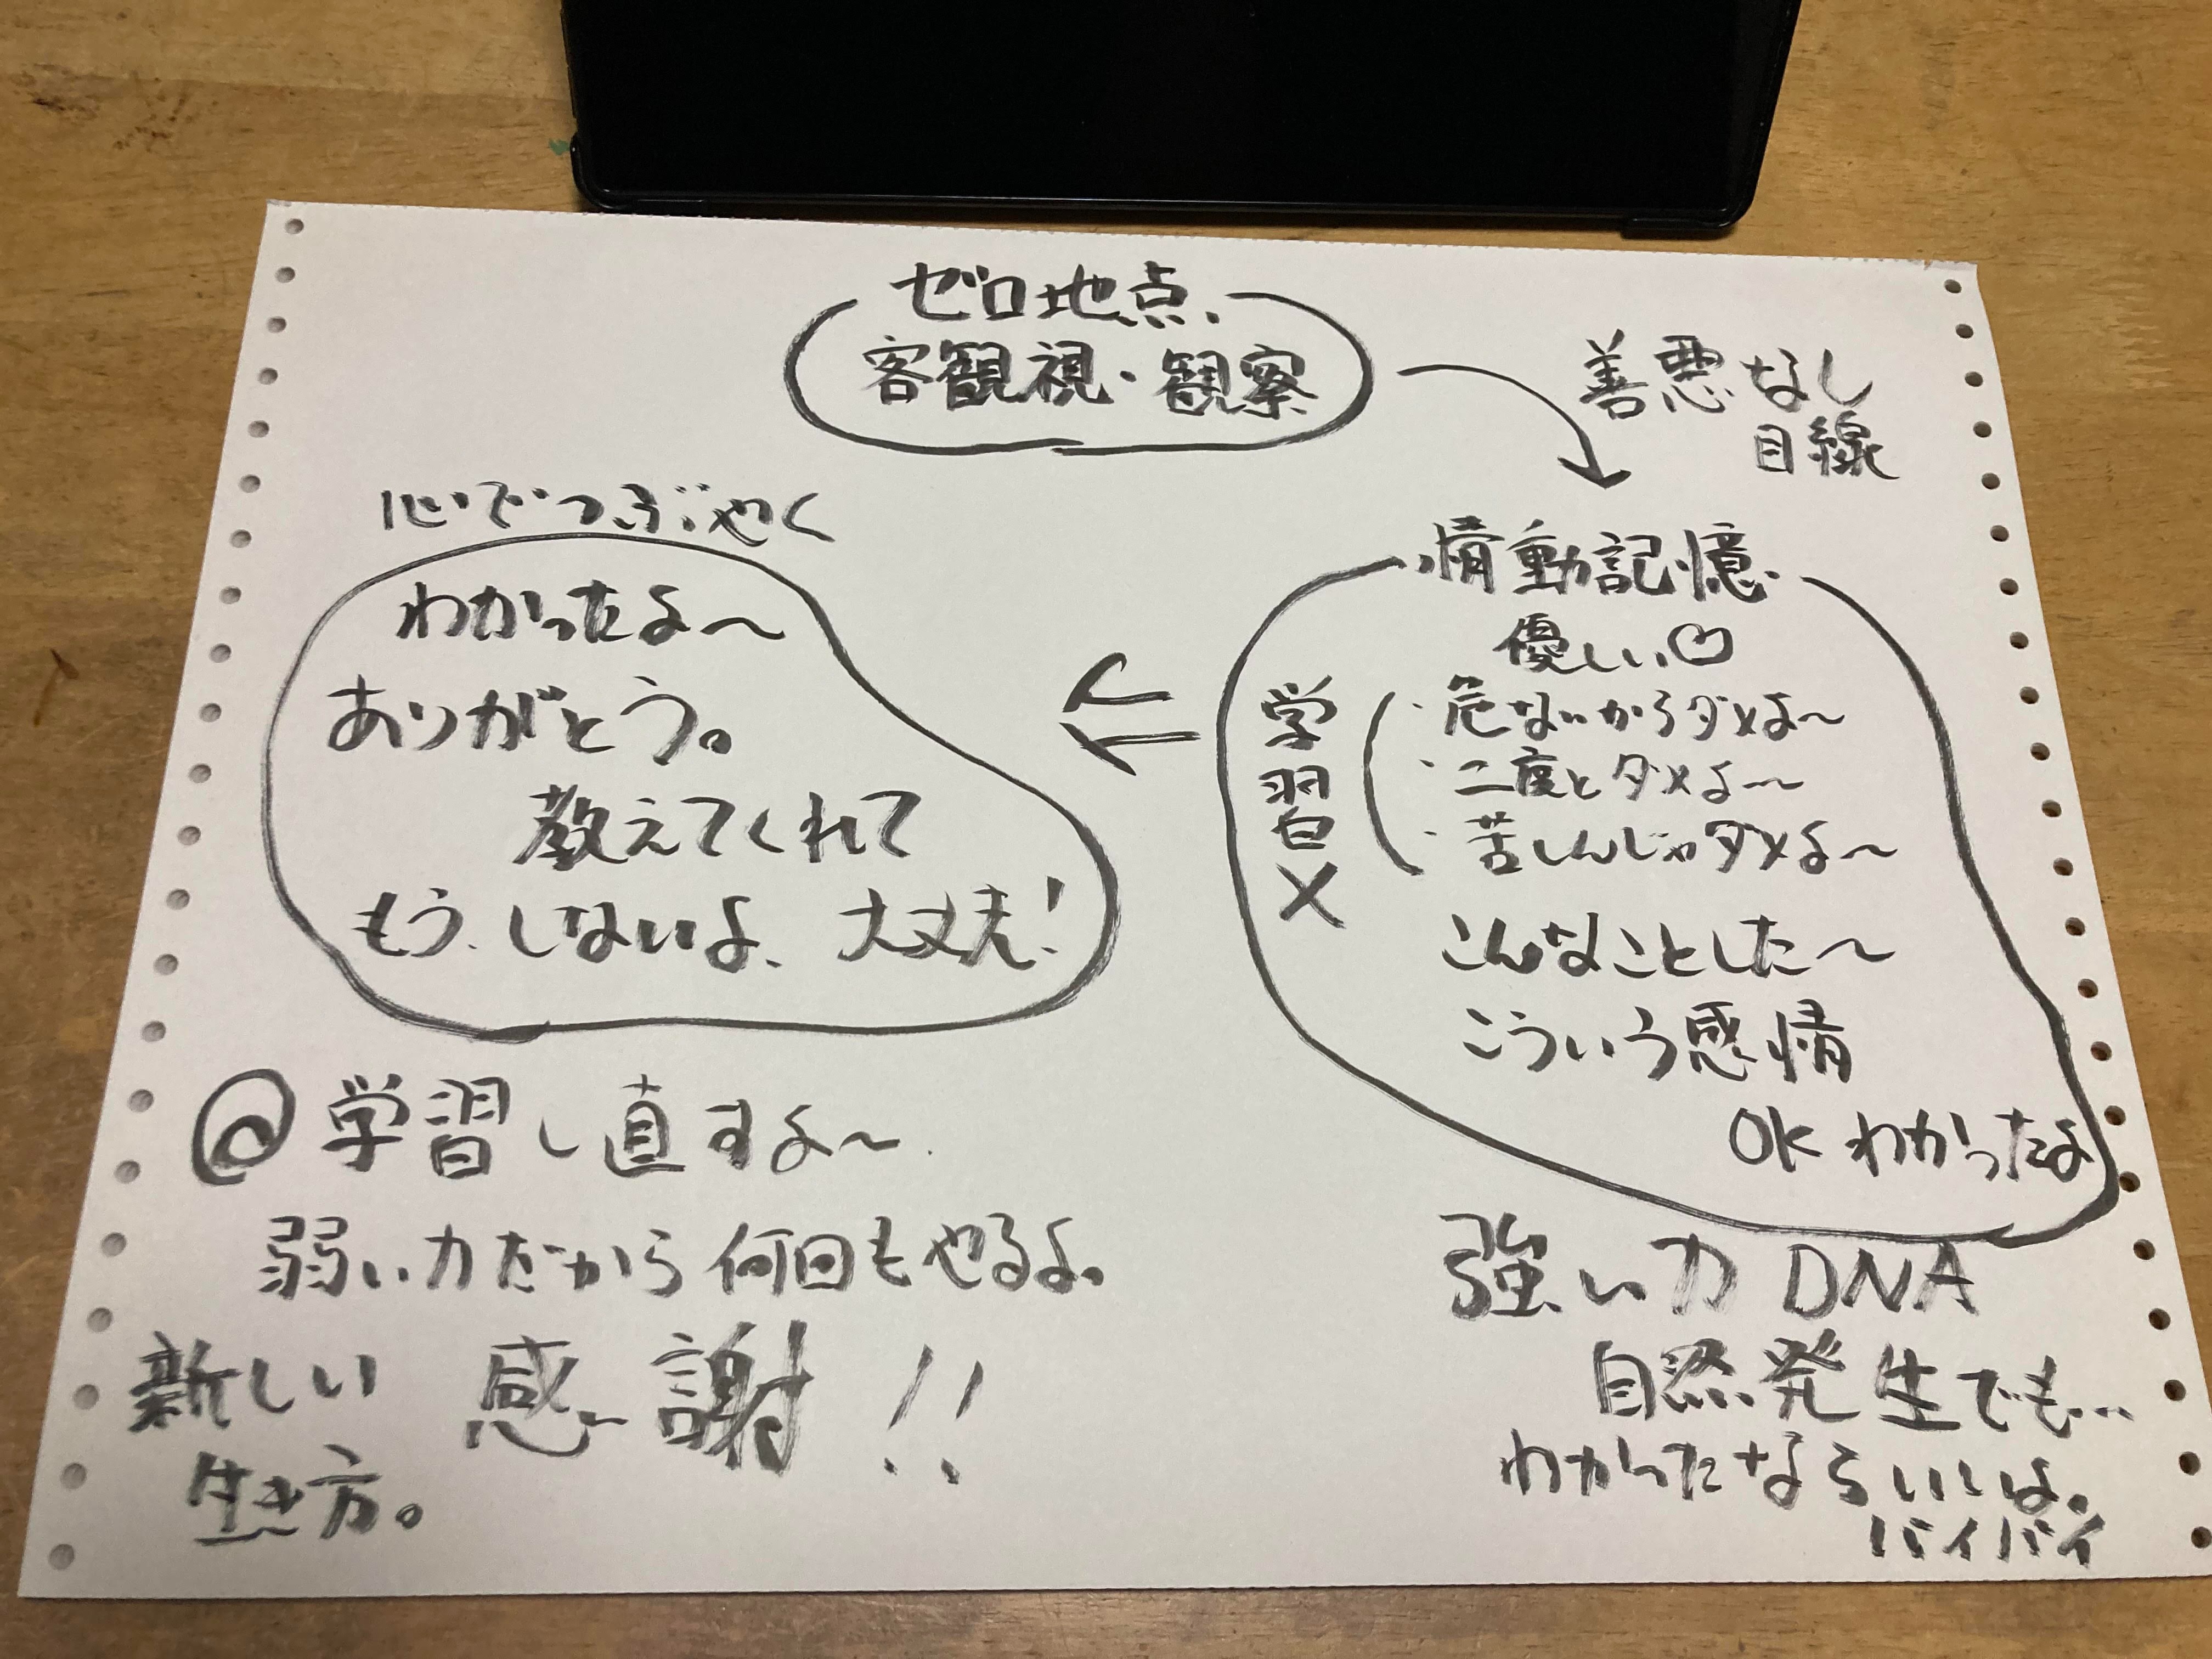 ゼロ地点
客観視・観察
善悪なし
目線
情動記憶
優しい♡
学習✕
・危ないからダメよ〜
・二度とダメよ〜
・苦しんじゃダメよ〜
こんなことした〜
こういう感情
OK わかったよ
強い力 DNA
自然発生でも…
わかったならいいよ。
バイバイ
心でつぶやく
わかったよ〜
ありがとう。
教えてくれて
もう、しないよ、大丈夫!
学習し直すよ〜
弱い力だから何回もやるよ。
新しい 感謝!!
生き方。